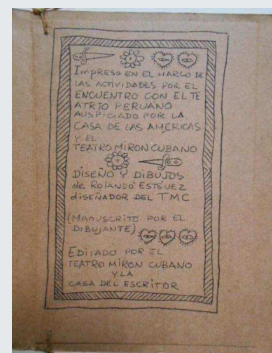 IMPRESO EN EL MARCO DE
LAS ACTIVIDADES POR EL
ENCUENTRO CON EL TE
ATRIO PERUANO
AUSPICIADO POR LA
CASA DE LAS AMERICAS
Y EL
TEATRO MIRON CUBANO
DISEÑO Y DIBUJOS
de ROLANDO ESTÉVEZ
diSEÑADOR DEL TMC
(MANUSCRITO POR EL
DIBUJANTE)
EDITADO POR EL
TEATRO MIRON CUBANO
Y LA
CASA DEL ESCRITOR